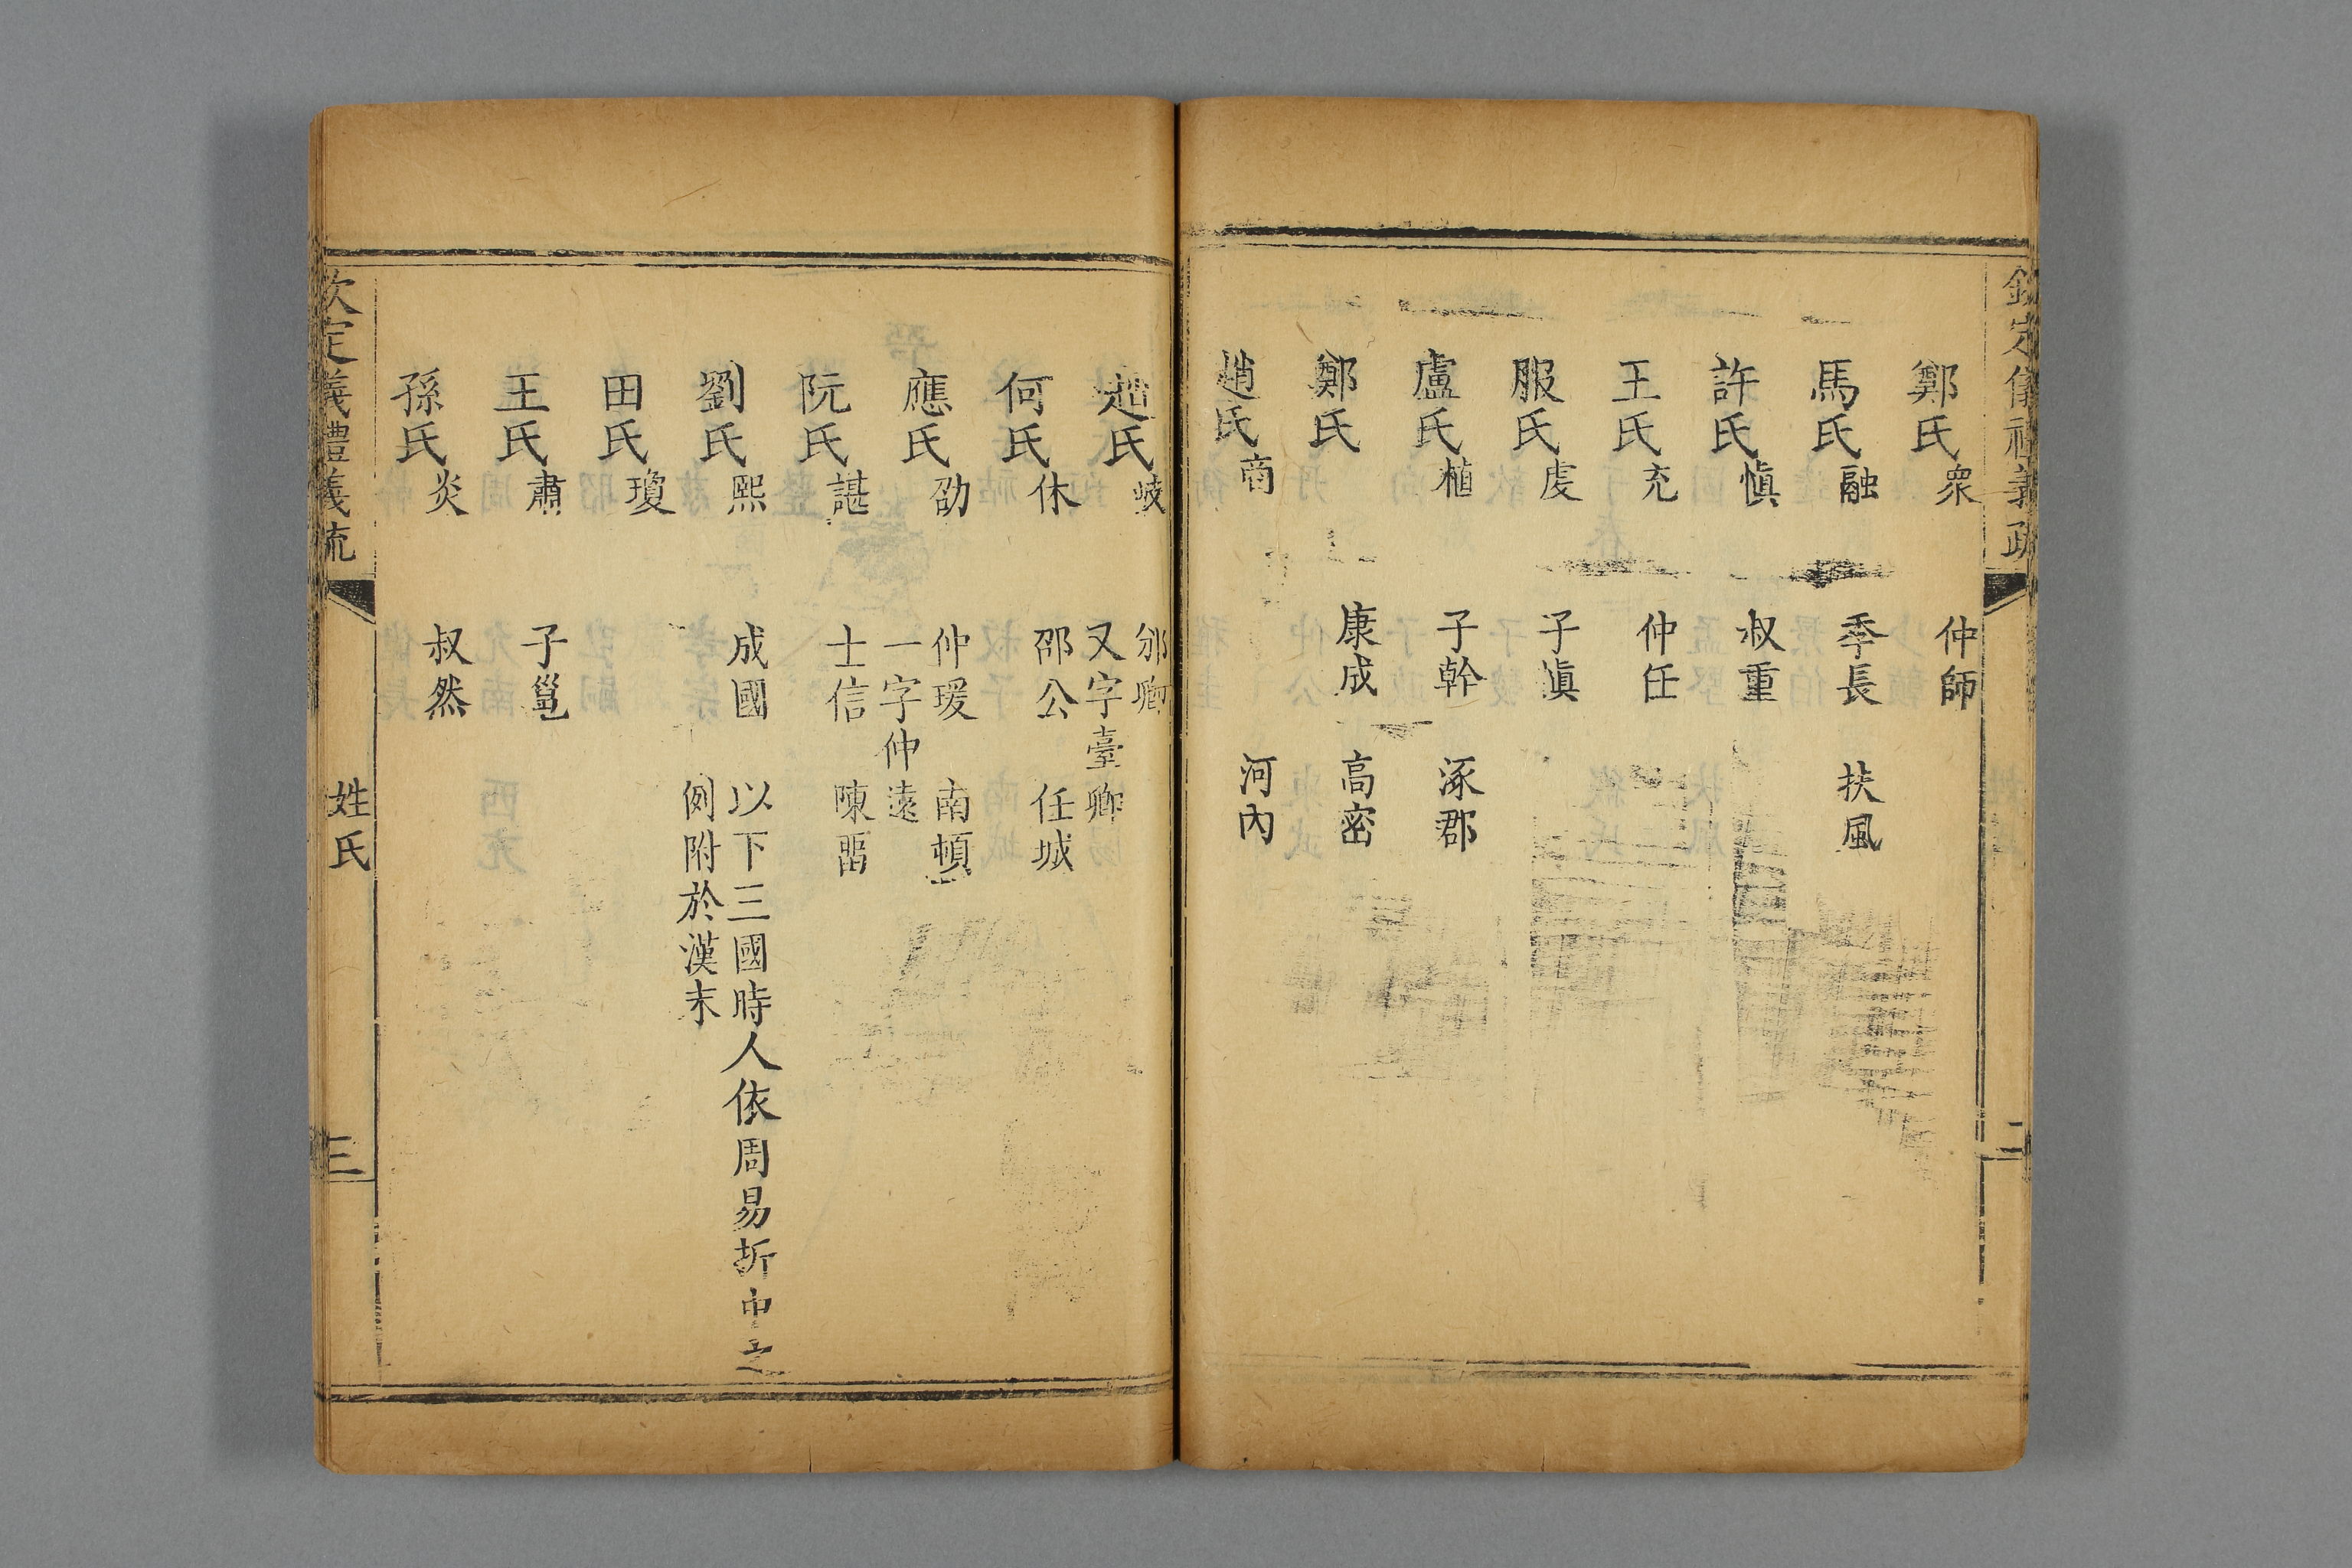 欽定儀禮義疏
二
鄭氏衆 仲師
馬氏融 季長 扶風
許氏愼 叔重
王氏充 仲任
服氏虔 子愼
盧氏植 子幹 涿郡
鄭氏 康成 高密
趙氏商 河內
趙氏岐 邠卿
又字臺卿
何氏休 邵公 任城
應氏劭 仲瑗 南頓
一字仲遠
阮氏諶 士信 陳留
劉氏熙 成國 以下三國時人依周易折中之
例附於漢末
田氏瓊
王氏肅 子邕
孫氏炎 叔然
欽定義禮義疏
姓氏
三